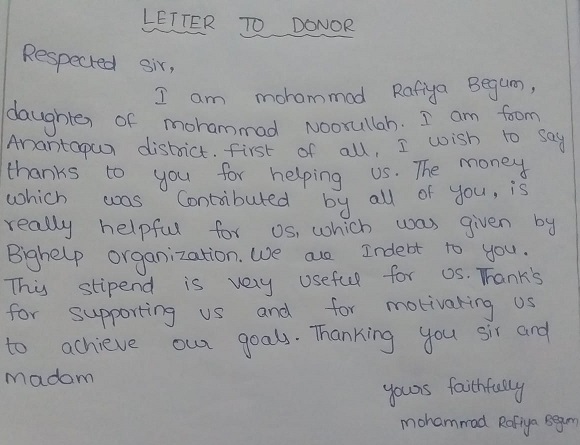 LETTER TO DONOR
Respected Sir,
I am mohammad Rafiya Begum,
daughter of mohammad Noorullah. I am from
Anantapur district. First of all, I wish to say
thanks to you for helping us. The money
which was Contributed by all of you, is
really helpful for us, which was given by
Bighelp organization. We are Indebt to you.
This stipend is very useful for us. Thank's
for supporting us and for motivating us
to achieve our goals. Thanking you sir and
madam
yours faithfully
mohammad Rafiya Begum